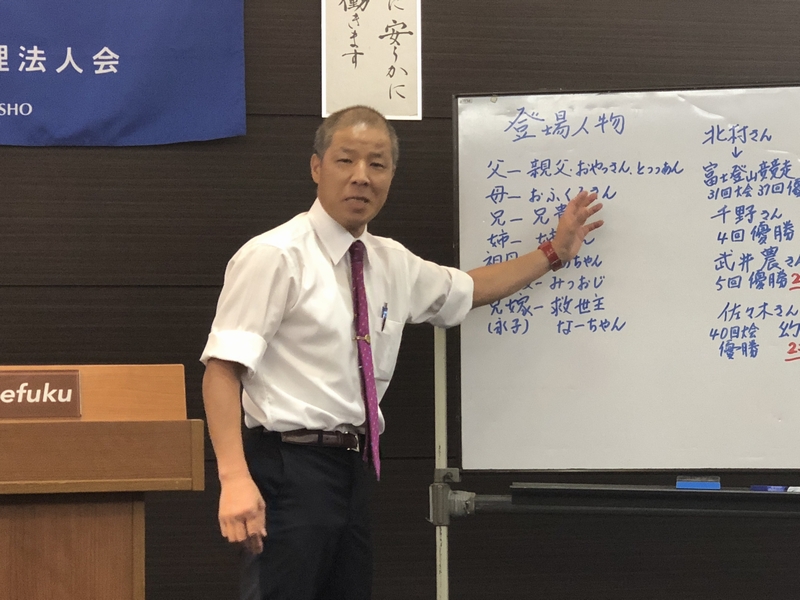 理法人会
SHO
に安らかに
働きます
efuku
登場人物
父ー親父・おやっさん、とっつあん
母ーおふくろさん
兄ー兄貴
姉ー
祖母
ちゃん
みつおじ
兄嫁ー救世主
(永子) なーちゃん
北村さん
↓
富士登山競走
31回大会 37回優
千野さん
4回優勝
武井農さん
5回優勝 2
佐々木さん
40回大会
優勝 2